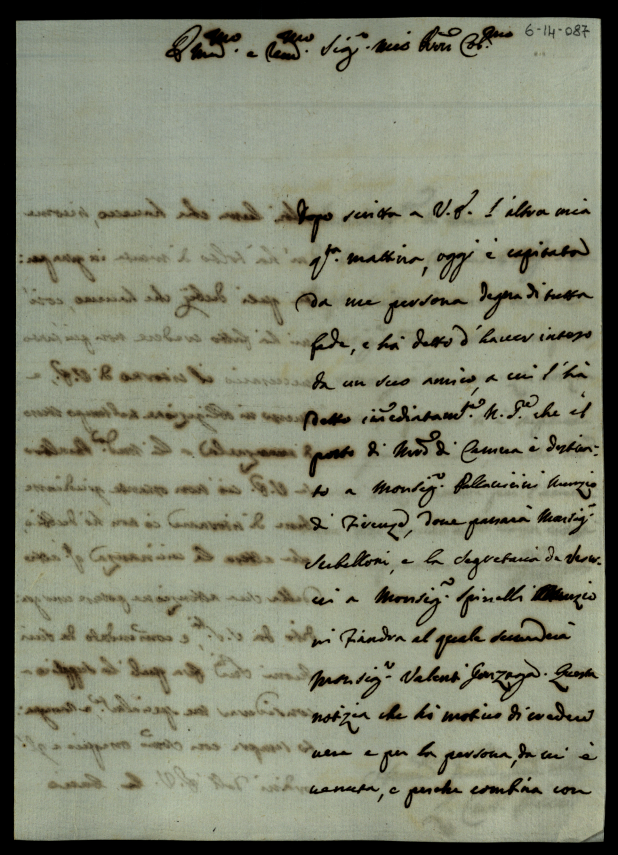 6-14-087
Emo. e Rmo. Sig.r mio Pron Col.mo
Dopo scritta a V.S. l'altra mia
q.ta mattina, oggi è capitata
da me persona degna di tutta
fede, e hà detto d'haver inteso
da un suo amico, a cui l'hà
detto immediatam.te N. S.re che il
posto di Mro di Camera è destina-
to a Monsig.r Pallavicini Nunzio
di Firenze, dove passarà Monsig.r
Serbelloni, e la Segretaria de Vesco-
vi a Monsig.r Spinelli Nunzio
in Fiandra al quale succederà
Monsig.r Valenti Gonzaga. Questa
notizia che hò motivo di creder
vera e per la persona, da cui è
venuta, e perche combina con